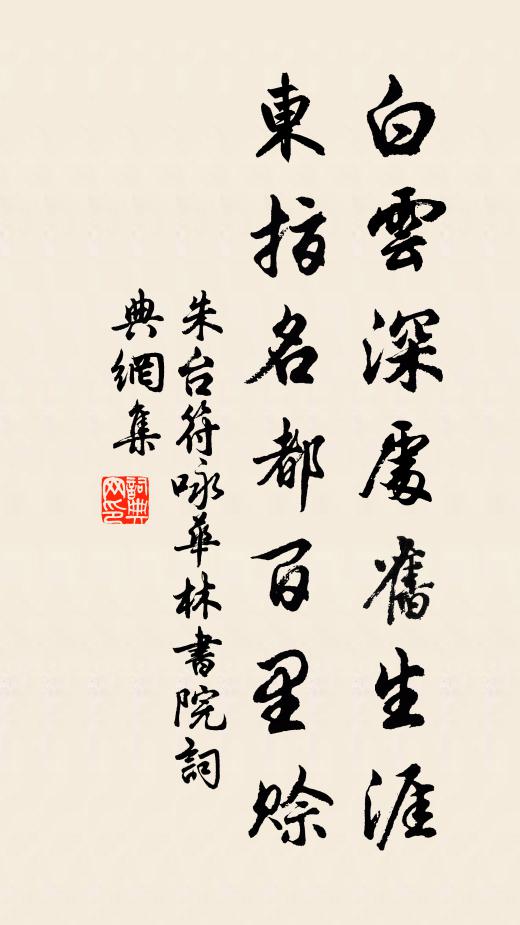 白雲深處舊生涯
東指名都百里賒
朱台符咏華林書院詞
典網集
詞典網印